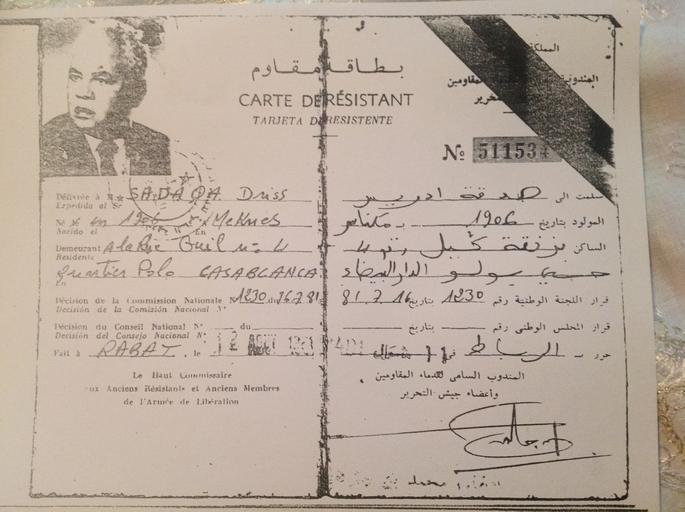 المملكة
المندوبية
المقاومين
التحرير
بطاقة مقاوم
CARTE DE RÉSISTANT
TARJETA DE RESISTENTE
№ 511534
Délivrée à M. SADAQA Driss
Expedida al Sr
سلمت الى صدقة ادريس
Né en 1906 Meknes
Nacido el En
المولود بتاريخ 1906 بـ مكناس
Demeurant
Residente
الساكن زنقة رقم 4
quartier Polo CASABLANCA
En
حي بولو الدار البيضاء
Décision de la Commission Nationale N° 1230 du 16.7.81
Decisión de la Comisión Nacional N°
قرار اللجنة الوطنية رقم 1230 بتاريخ 16 7 81
Décision du Conseil National N° du
Decisión del Consejo Nacional N°
قرار المجلس الوطني رقم بتاريخ
Fait à RABAT, le
حرر بـ الرباط في
Le Haut Commissaire
aux Anciens Résistants et Anciens Membres
de l'Armée de Libération
المندوب السامي لقدماء المقاومين
وأعضاء جيش التحرير
محمد